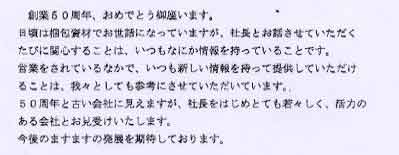 創業50周年、おめでとう御座います。
日頃は梱包資材でお世話になっていますが、社長とお話させていただく
たびに関心することは、いつもなにか情報を持っていることです。
営業をされているなかで、いつも新しい情報を持って提供していただけ
ることは、我々としても参考にさせていただいています。
50周年と古い会社に見えますが、社長をはじめとても若々しく、活力の
ある会社とお見受けいたします。
今後のますますの発展を期待しております。